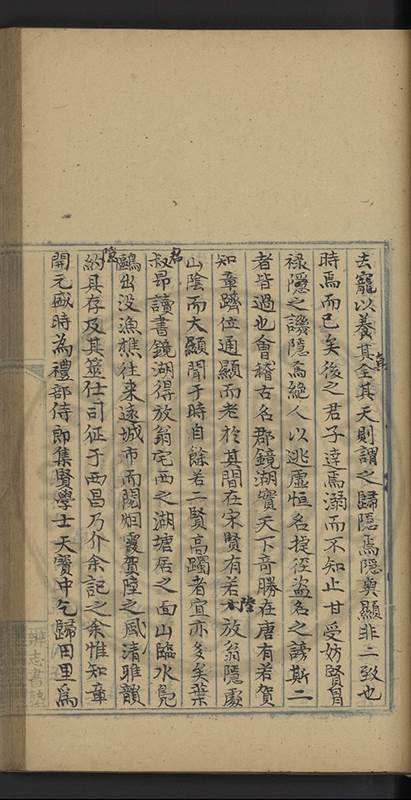 去寵以養其全其天則謂之歸隱焉隱與顯非二致也
時焉而已矣後之君子達焉溺而不知止甘受妨賢冒
祿隱之譏隱焉絕人以逃虛恒名捷徑盜名之謗斯二
者皆過也會稽古名郡鏡湖實天下奇勝在唐有若賀
知章躋位通顯而老於其間在宋賢有若陸放翁隱處
山陰而大顯聞于時自餘若二賢高躅者宜亦多矣葉
君叔昂讀書鏡湖得放翁宅西之湖塘居之面山臨水鳧
鷗出没漁樵往来遠城市而閱烟霞賀陸之風清雅韻
隱約具存及其筮仕司征于西昌乃介余記之余惟知章
開元盛時為禮部侍郎集賢學士天寶中乞歸田里為